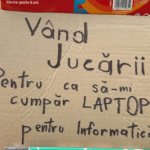 Vând
Jucării
Pentru ca să-mi
cumpăr LAPTOP
pentru Informatică